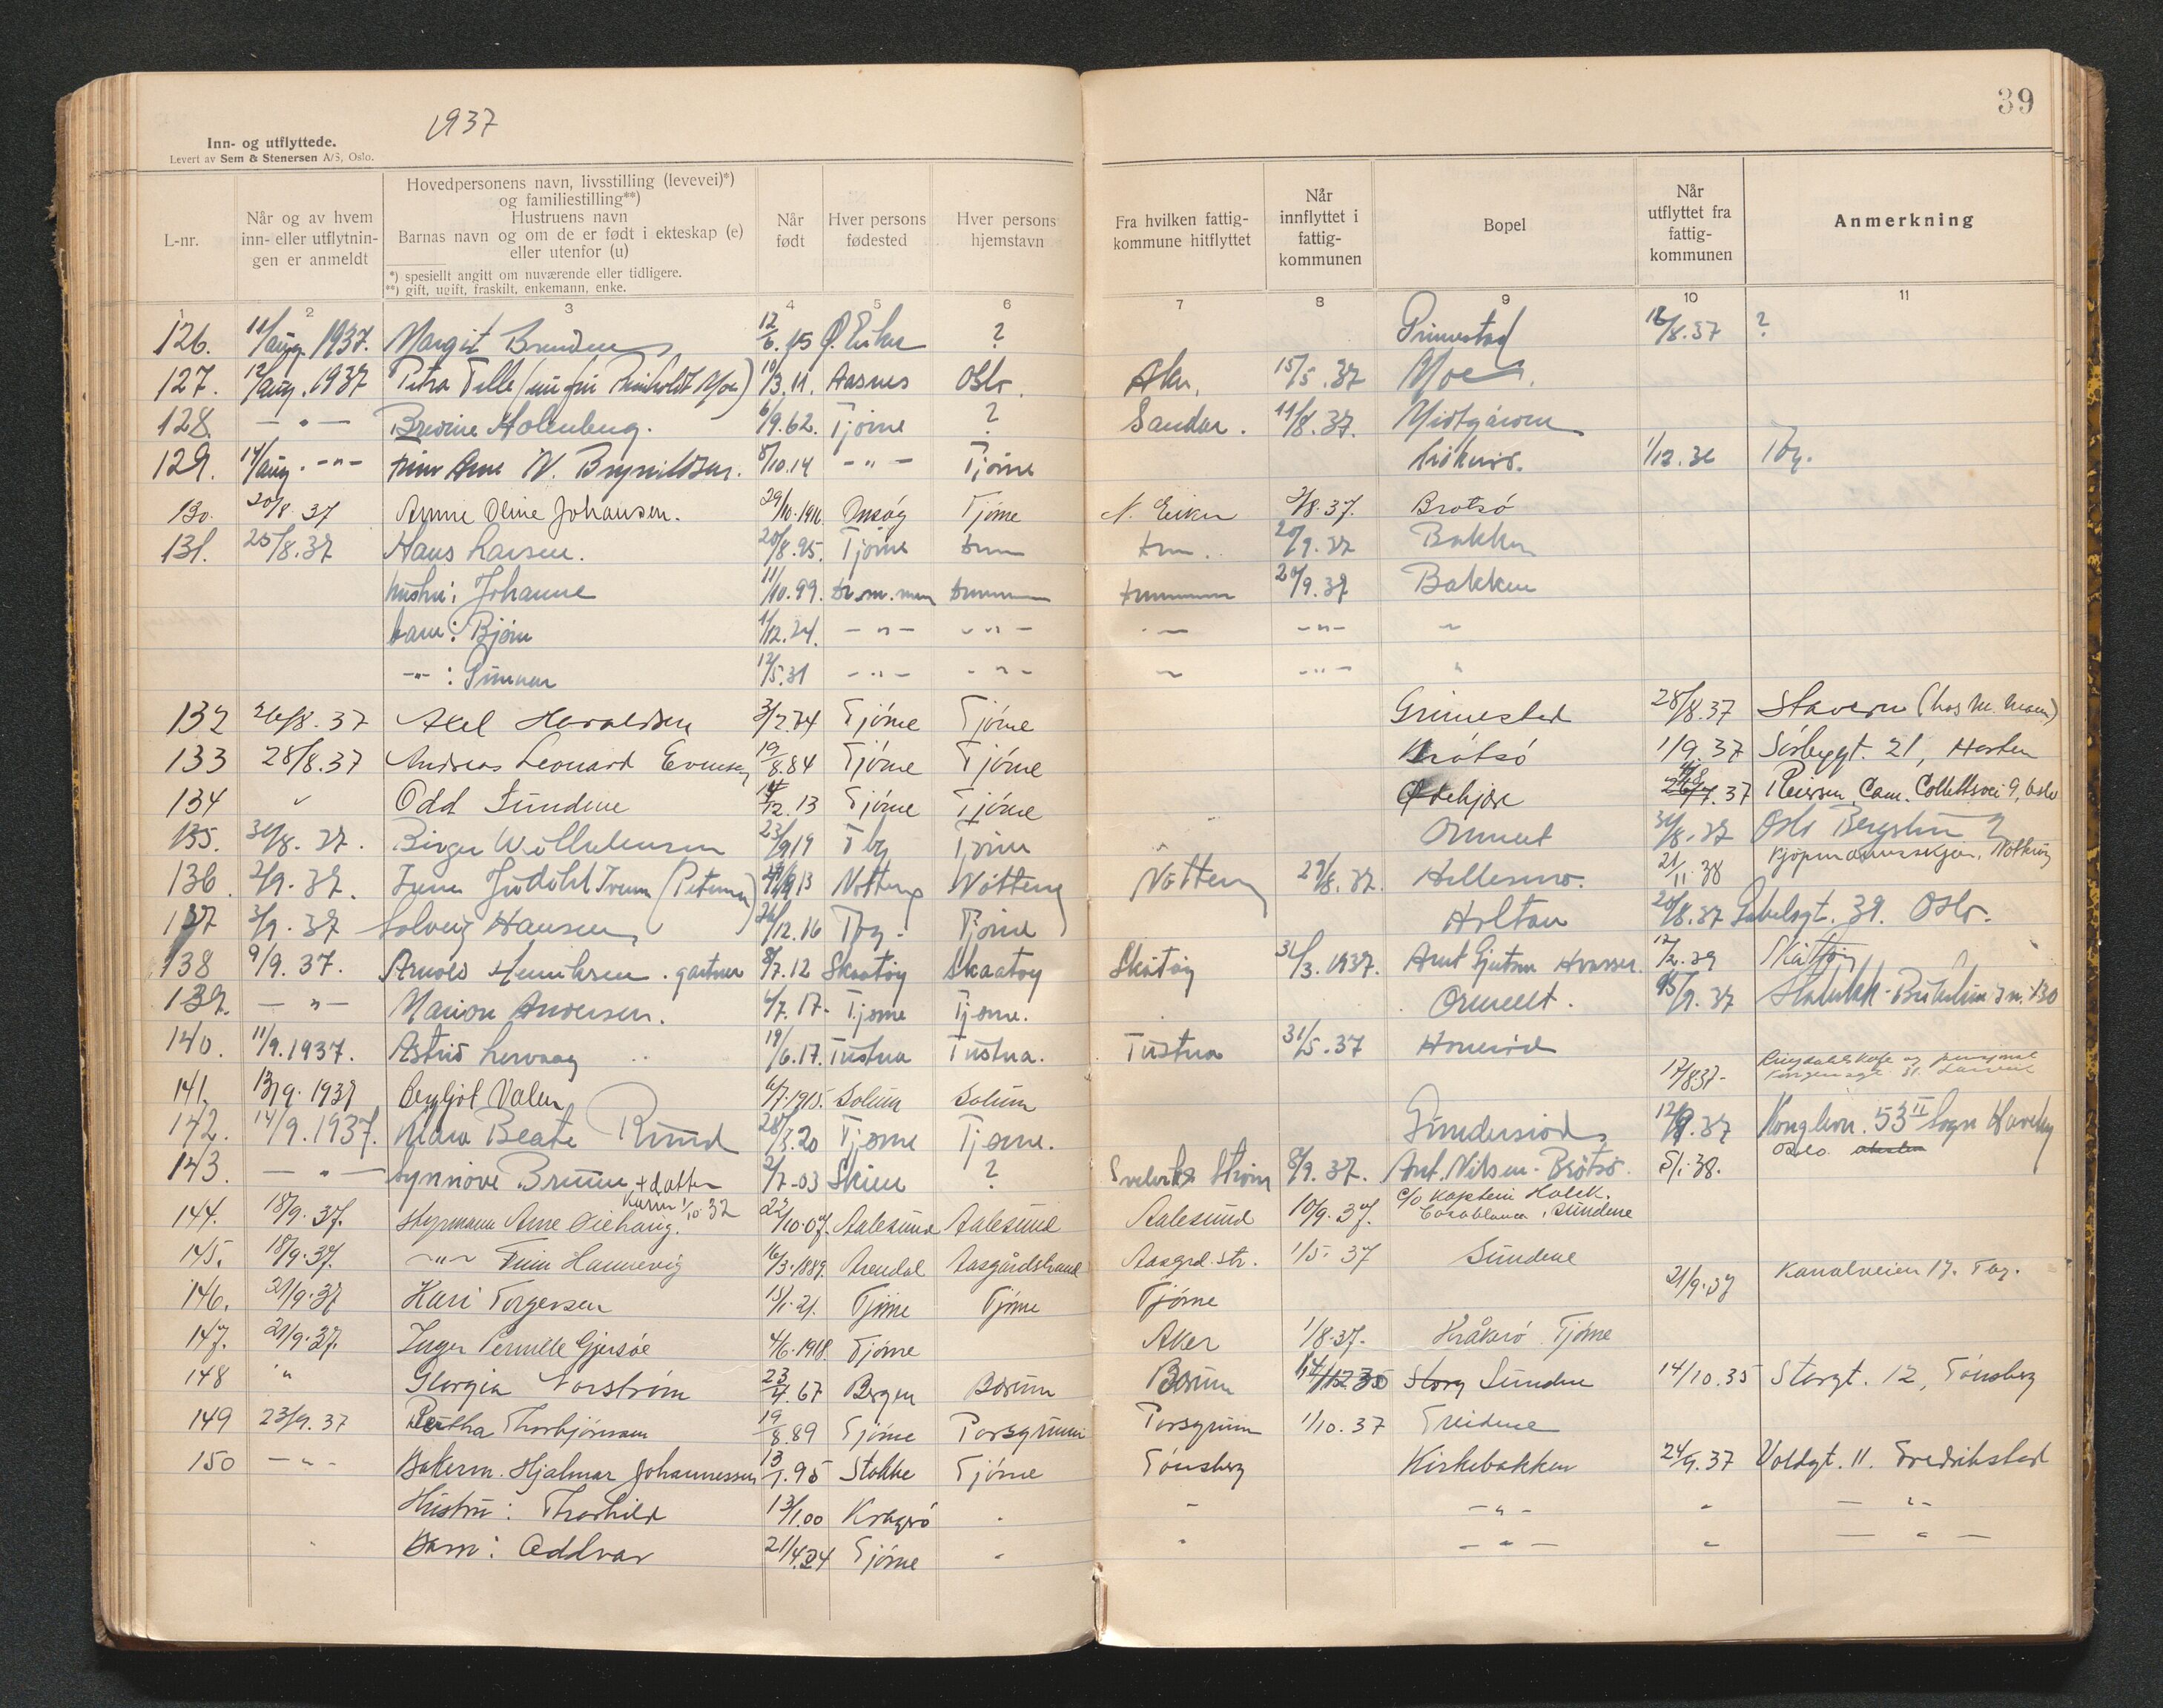 1937
39
Inn- og utflyttede.
Levert av Sem & Stenersen A/S, Oslo.
L-nr.
Når og av hvem inn- eller utflytnin-gen er anmeldt
Hovedpersonens navn, livsstilling (levevei)*) og familiestilling**)
Hustruens navn
Barnas navn og om de er født i ekteskap (e) eller utenfor (u)
*) spesiellt angitt om nuværende eller tidligere.
**) gift, ugift, fraskilt, enkemann, enke.
Når født
Hver persons fødested
Hver persons hjemstavn
Fra hvilken fattig-kommune hitflyttet
Når innflyttet i fattig-kommunen
Bopel
Når utflyttet fra fattig-kommunen
Anmerkning
1 2 3 4 5 6 7 8 9 10 11
126. 11/aug. 1937. Margit Brenden 12/6.15 Ø. Eiker ? Grimestad /8.37 ?
127. 12/aug. 1937 Petra Telle 10/3.11. Aasnes Oslo. Aker. 15/5.37 Moe
128. — " — Holmberg. 6/9.62. Tjöme ? Sandar. 11/8.37. Midtgården
129. 14/aug. -"- Arne N. Brynildsen. 8/10.14 -"- Tjöme 1/12.36 Tbg.
130. 20/8 37 Anne Oline Johansen. 29/10.1910. Onsöy Tjöme N. Eiker 2/8.37. Brotsö
131. 25/8.37 Hans Larsen. 20/8.95. Tjöme 20/9.37 Bakken
hustru: Johanne 11/10.99. 20/9.37 Bakken
barn: Bjørn 11/12.24. -"- -"- -"-
-"-: Gunnar 12/5.31 -"- -"- -"-
132 26/8.37 Axel Haraldsen 3/2.74 Tjöme Tjöme Grimestad 28/8.37 Stavern
133 28/8.37 Andreas Leonard Evensen 19/8.84 Tjöme Tjöme Brötsö 1/9.37 Sørbygt. 21, Horten
134 " Odd Sundene /12.13 Tjöme Tjöme .37 Cam. Collettsvei 9, Oslo
135. 31/8.37. Birger Wilhelmsen 23/9 19 Tbg Tjöme Ormelet 31/8.37 Oslo
136. 2/9.37. Nötteröy 29/8.37. 21/11.38
137 3/9.37 Solveig Hansen 26/12.16 Tbg. Tjöme Holtan 20/8.37 Gabelsgt. 39. Oslo.
138 9/9.37. Arnold Henriksen. gartner 8/7.12 Skaatöy Skaatöy Skåtöy 31/3.1937. Hvasser. 12/2.39 Skåtöy
139. — " — Marion Andersen. 6/7.17. Tjøme Tjøme. Ormelet. 15/9.37
140. 11/9.1937. Astrid Lervaag 19/6.17. Tustna Tustna. Tustna 31/5.37
141. 13/9.1937 Bergljot Valen 6/7.1915. Solum Solum 17/8.37
142. 14/9.1937. Klara Beate Ruud 28/3.20 Tjøme Tjøme. 12/9.37 53 II Sogn Haveby Oslo
143. — " — Synnöve Bruun + datter Karin 1/10.32 2/7-03 Skien ? 8/9.37. Ant. Nilsen. Brötsö. 5/1.38.
144. 18/9.37. Styrmann Arne 22/10.07. Aalesund Aalesund Aalesund 10/9.37. c/o Kaptein Holck. Casablanca, Sundene
145. 18/9.37. -"- Finn Hannevig 16/3.1889. Arendal Aasgårdstrand Aasgrd. str. 1/5.37 Sundene
146. 21/9.37 Kari Torgersen 15/1.21. Tjöme Tjöme Tjöme 21/9.37 Kanalveien 17. Tbg.
147. 21/9.37. Inger Pernille Gjersøe 4/6.1918. Tjöme Aker 1/8.37. Kråkerö Tjöme
148 " Georgia Norström 23/4.67 Bergen Bærum Bærum Sundene 14/10.35 Storgt. 12, Tönsberg
149 23/9.37 Bertha Thorbjörnsen 19/8.89 Tjöme Porsgrunn Porsgrunn 1/10.37 Treidene
150 -"- Bakerm. Hjalmar Johannessen 13/1.95 Stokke Tjöme Tönsberg Kirkebakken 24/9.37 Voldgt. 11. Fredrikstad
Hustru: Thorhild 13/1.00 Kragerö " " -"- " -"-
Barn: Oddvar 21/4.24 Tjöme " " -"- " -"-